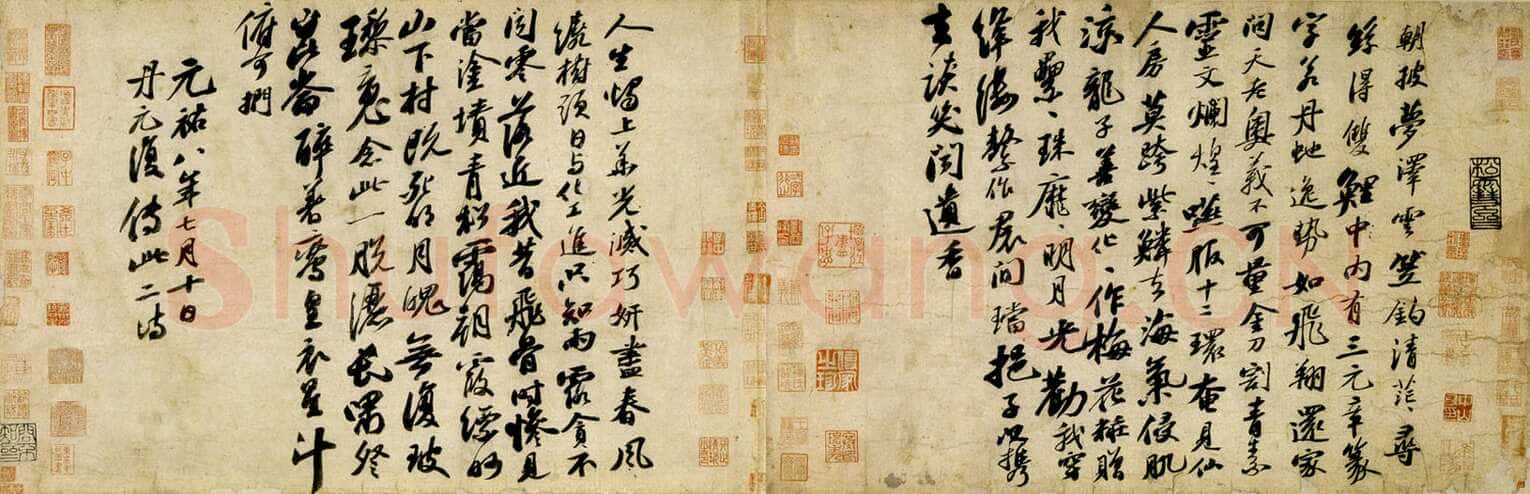 朝披夢澤雲笠釣清茫〻尋
絲得雙鯉中内有三元章篆
字若丹虵逸勢如飛翔還家
問天老奧義不可量金刀割青素
靈文爛煌〻嚥服十二環奄見仙
人房莫跨紫鱗去海氣侵肌
涼龍子善變化〻作梅花粧贈
我纍〻珠靡〻明月光勸我穿
絳縷繫作裙間璫挹子以攜
去談笑聞遺香
人生燭上華光滅巧妍盡春風
繞樹頭日與化工進只知雨露貪不
聞零落近我昔飛骨時慘見
當塗墳青松靄朝霞縹緲
山下村既死明月魄無復玻
瓈魂念此一脫灑長嘯祭
崑崙醉著鸞皇衣星斗
俯可捫
元祐八年七月十日
丹元復傳此二詩
Shufawang.CN